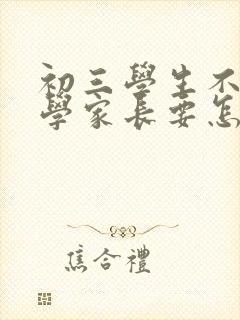 初三學生不
學家長要怎
焦合禮